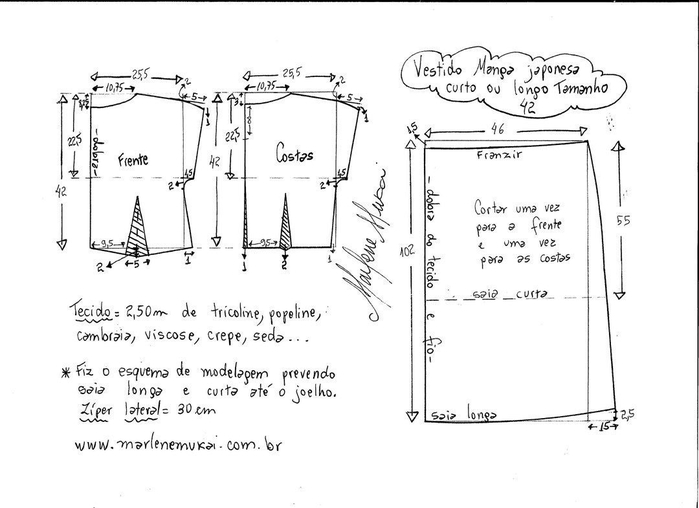 Vestido Manga japonesa
curto ou longo Tamanho
42
25,5
10,75
2
5
1
22,5
42
Frente
-dobra-
1,5
2
9,5
5
2
1
25,5
10,75
2
5
3
1
22,5
42
Costas
1,5
2
9,5
1
2
1
Marlene Mukai
1,5
46
Franzir
- dobra do tecido e fio -
Cortar uma vez
para a frente
e uma vez
para as costas
saia curta
55
102
saia longa
2,5
15
Tecido = 2,50m de tricoline, popeline,
cambraia, viscose, crepe, seda...
* Fiz o esquema de modelagem prevendo
saia longa e curta até o joelho.
Zíper lateral = 30 cm
www.marlenemukai.com.br